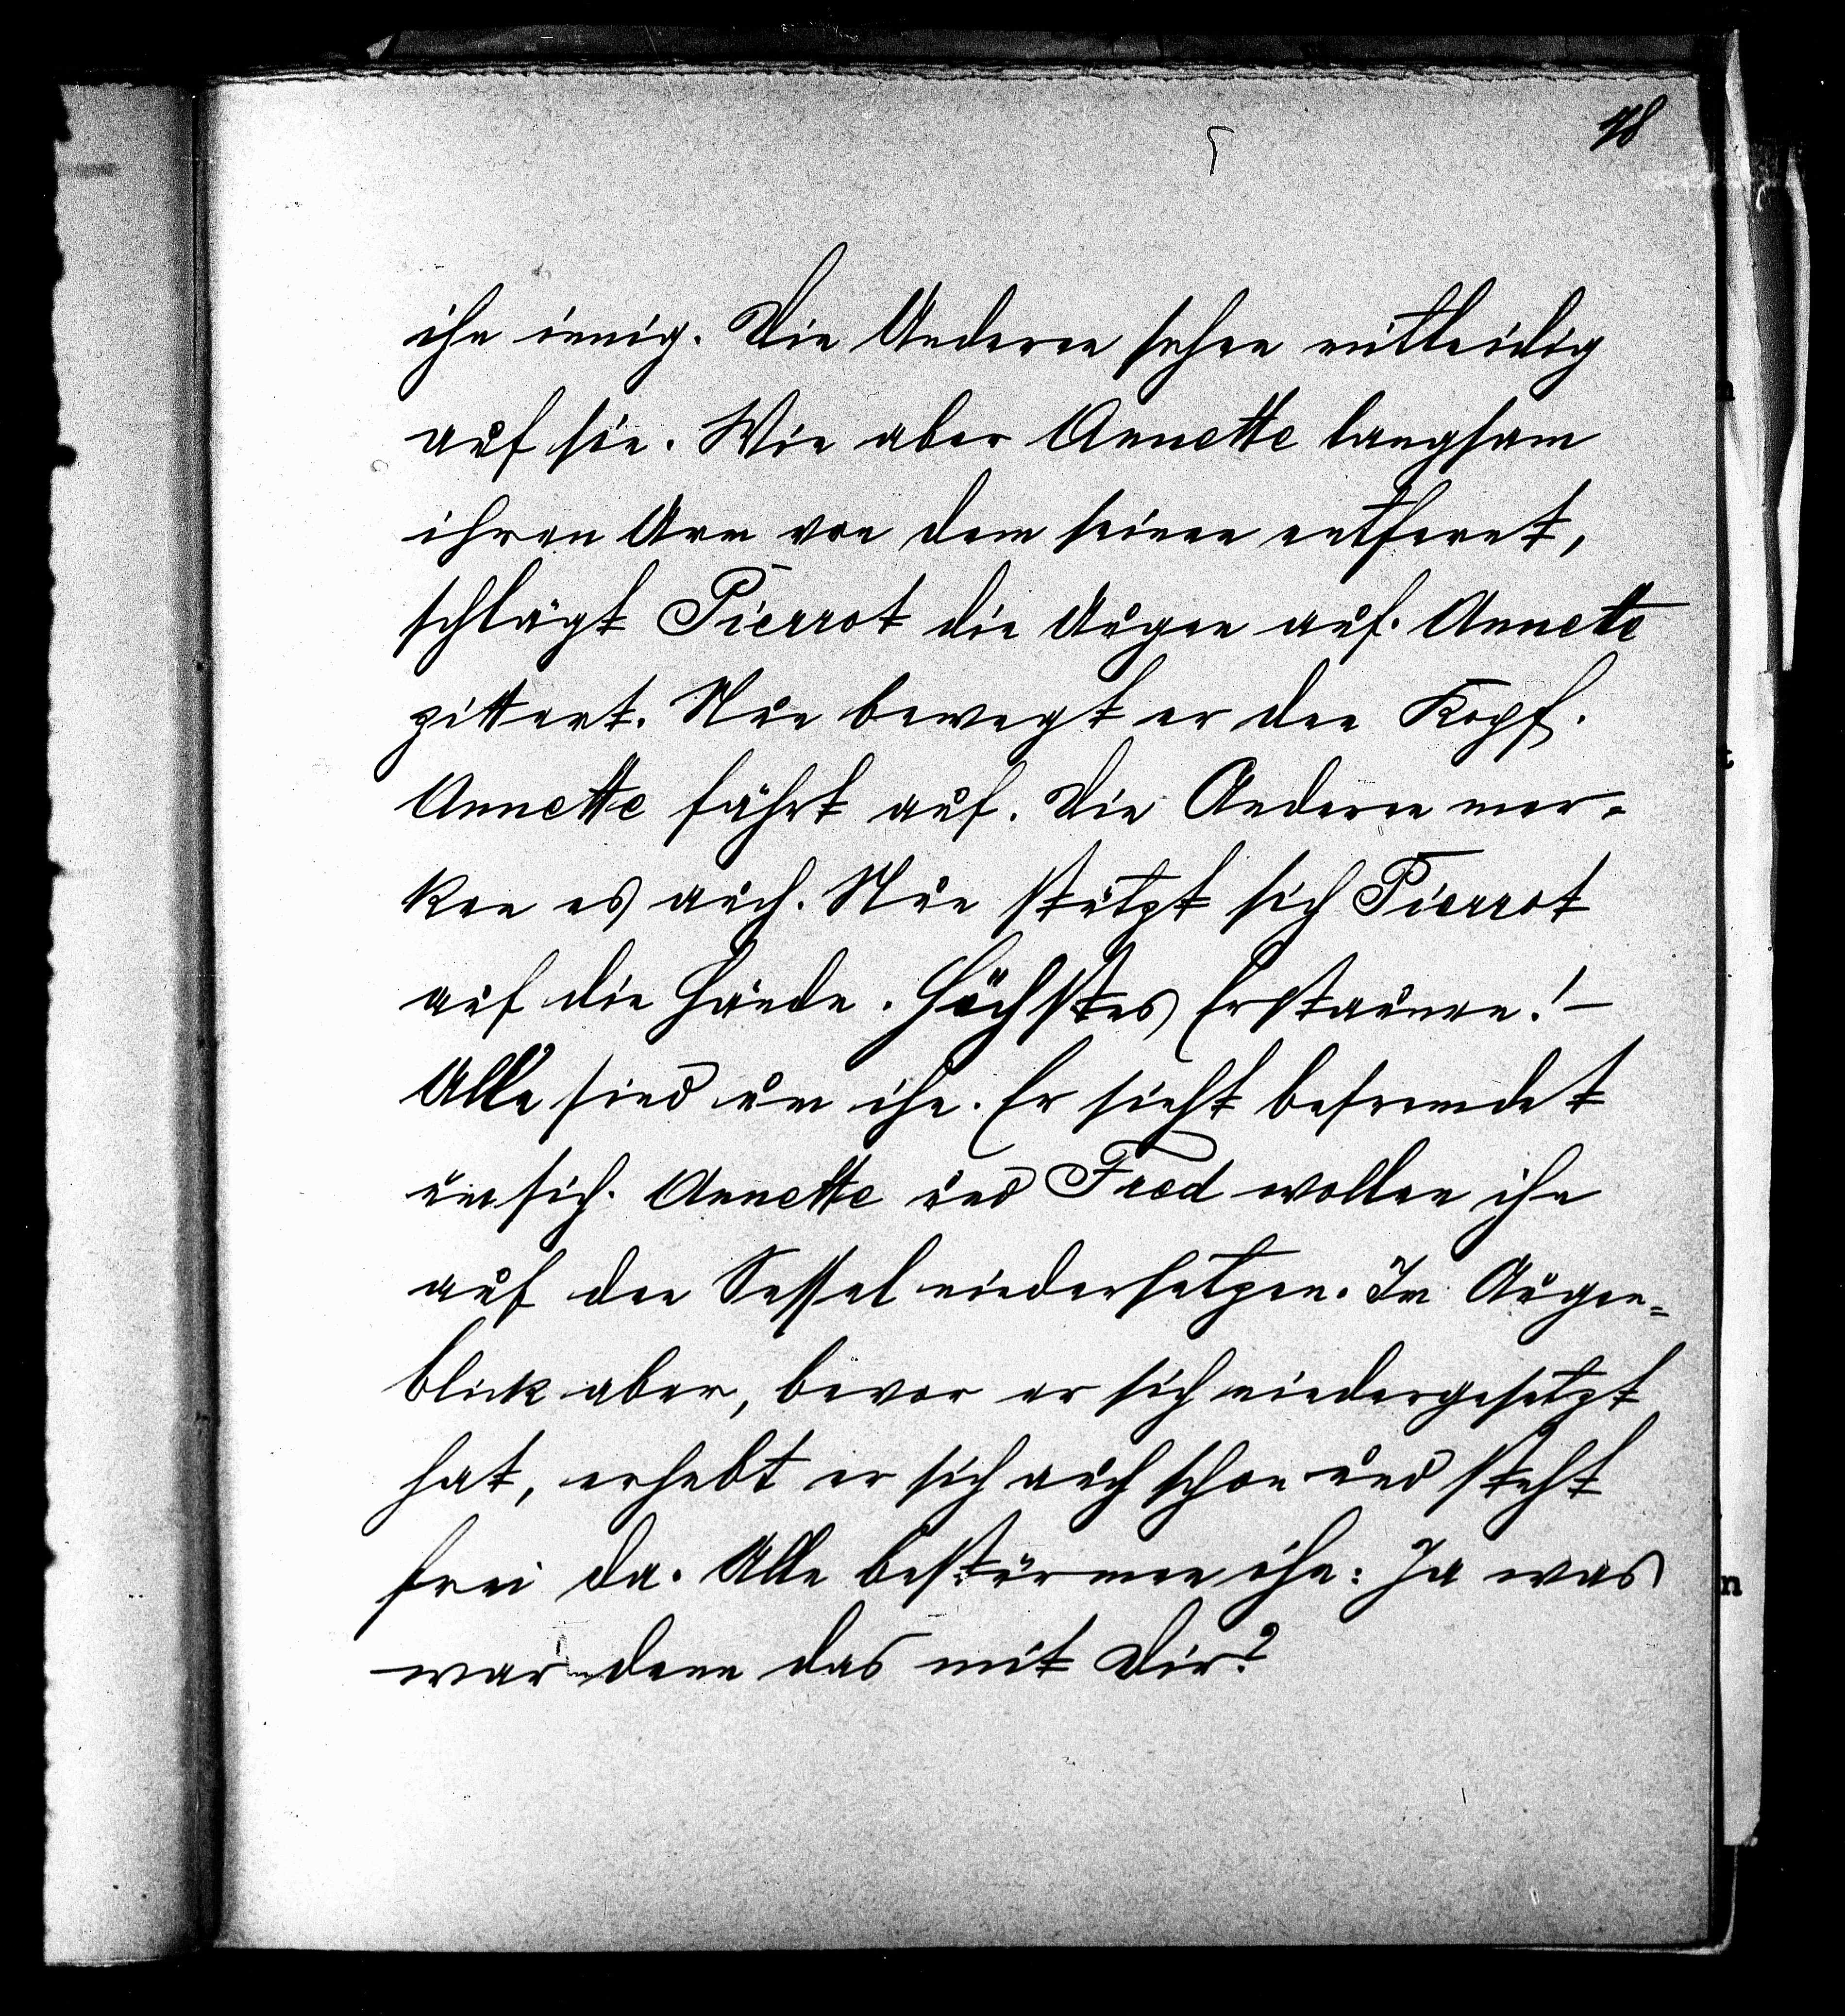 48
ihn innig. Die Anderen sehen mitleidig
auf sie. Wie aber Annette langsam
ihren Arm von dem seinen entfernt,
schlägt Pierrot die Augen auf. Annette
zittert. Nun bewegt er den Kopf.
Annette fährt auf. Die Anderen mer-
ken es auch. Nun stützt sich Pierrot
auf die Hände. Höchstes Erstaunen! –
Alle sind um ihn. Er sieht befremdet
um sich. Annette und Fred wollen ihn
auf den Sessel niedersetzen. Im Augen=
blick aber, bevor er sich niedergesetzt
hat, erhebt er sich auch schon und steht
frei da. Alle bestürmen ihn: Ja was
war denn das mit Dir?